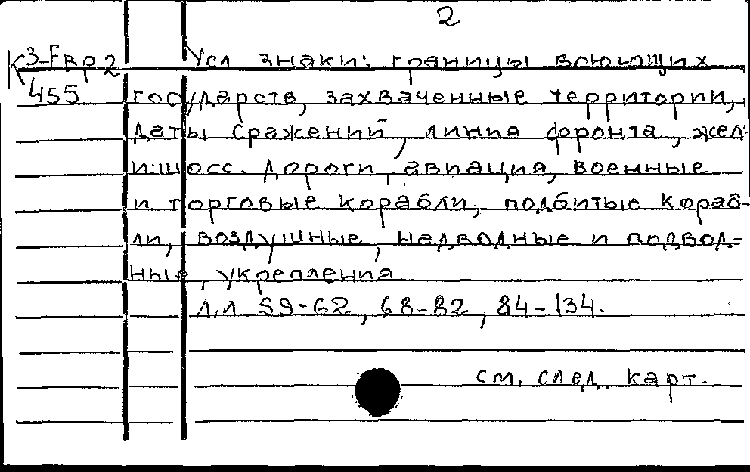 2
К 3-Евр 2 Усл знаки: границы воюющих
455 государств, захваченные территории,
даты сражений, линия фронта, жел
и шосс. дороги, авиация, военные
и торговые корабли, подбитые кораб-
ли, воздушные, надводные и подвод-
ные, укрепления
л.л 59-62, 68-82, 84-134.
см. след. карт.